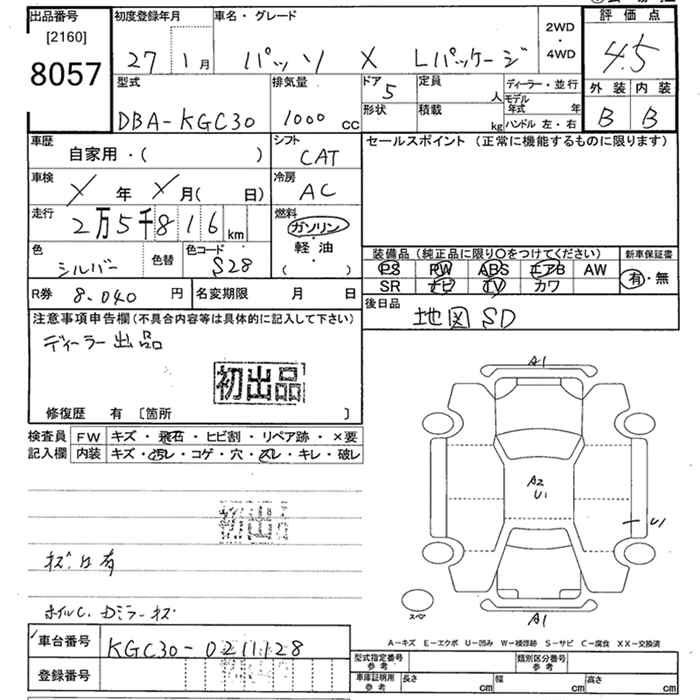 出品番号 初度登録年月 車名・グレード 2WD・4WD 評価点
[2160]
8057
27 1月 パッソ X Lパッケージ 4.5
型式 排気量 ドア 5 定員 人 ディーラー・並行 外装 内装
DBA-KGC30 1000cc 形状 積載 kg モデル年式 年 ハンドル 左・右 B B
車歴 自家用・( ) シフト CAT セールスポイント (正常に機能するものに限ります)
車検 年 月( 日) 冷房 AC
走行 2万5千816km 燃料 ガソリン・軽油 ( )
色 シルバー 色替 色コード S28
装備品(純正品に限り〇をつけてください) 新車保証書
PS PW ABS エアB AW 有・無
SR ナビ TV カワ
R券 8.040円 名変期限 月 日 後日品 地図 SD
注意事項申告欄(不具合内容等は具体的に記入して下さい)
ディーラー出品
初出品
修復歴 有 〔箇所 〕
検査員記入欄 FW キズ・飛石・ヒビ割・リペア跡・×要
内装 キズ・汚レ・コゲ・穴・スレ・キレ・破レ
初出品
キズ凹有
ホイルC.
キズ
A1
A2
U1
U1
A1
スペア
A-キズ E-エクボ U-凹み W-補修跡 S-サビ C-腐食 XX-交換済
車台番号 KGC30-0211128
登録番号
型式指定番号 参考 類別区分番号 参考
車庫証明用 参考 長さ cm 幅 cm 高さ cm